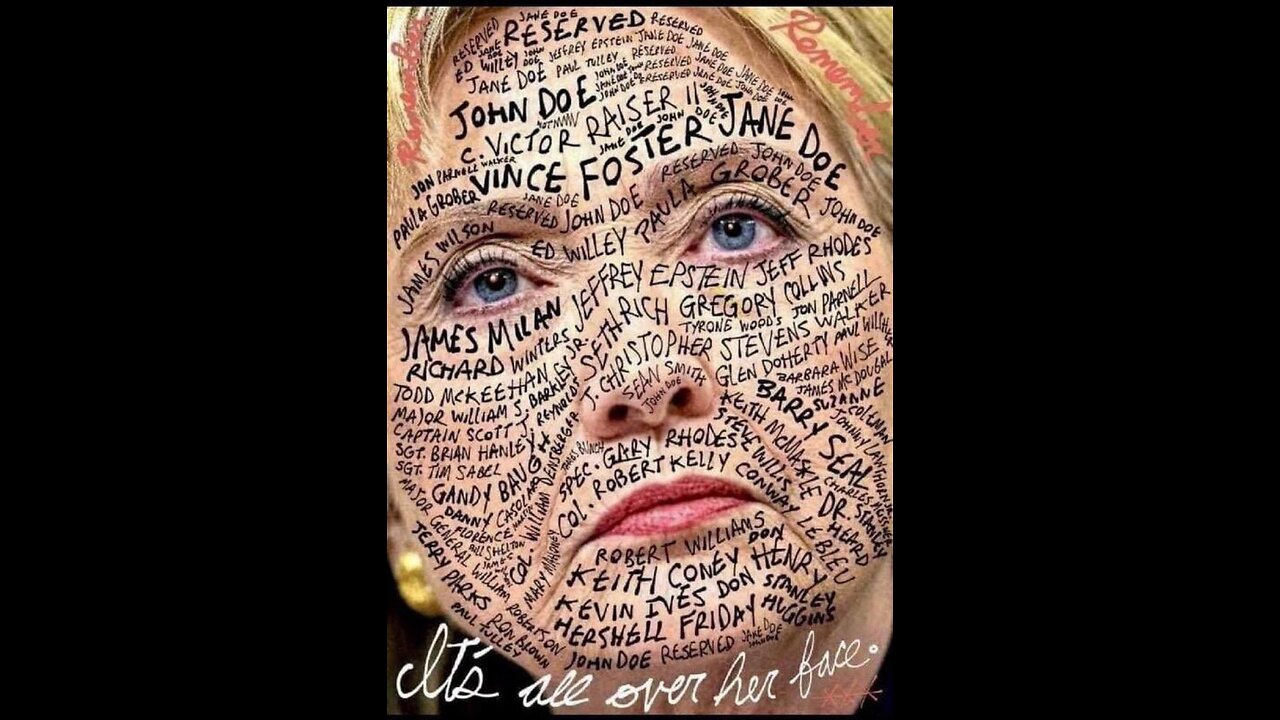 Remember
Remember
JANE DOE
RESERVED
RESERVED
RESERVED
JANE DOE
ED WILLEY
JOHN DOE
JEFFREY EPSTEIN
JANE DOE
JANE DOE
JANE DOE
PAUL TULLEY
RESERVED
RESERVED
JANE DOE
JANE DOE
JOHN DOE
RESERVED
JANE DOE
JOHN DOE
JOHN DOE
C. VICTOR RAISER II
JANE DOE
JOHN DOE
JANE DOE
JON PARNELL WALKER
VINCE FOSTER
RESERVED
JOHN DOE
PAULA GROBER
JANE DOE
RESERVED
JOHN DOE
PAULA GROBER
JOHN DOE
JAMES WILSON
ED WILLEY
JEFFREY EPSTEIN
JEFF RHODES
JAMES MILAN
SETH RICH
GREGORY COLLINS
RICHARD WINTERS
TYRONE WOODS
JON PARNELL WALKER
TODD MCKEEHAN
J. CHRISTOPHER STEVENS
MAJOR WILLIAM S. BARKLEY JR.
SEAN SMITH
GLEN DOHERTY
PAUL WILCHER
CAPTAIN SCOTT J. REYNOLDS
JOHN DOE
BARBARA WISE
JAMES MCDOUGAL
SGT. BRIAN HANLEY
BARRY SEAL
SUZANNE COLEMAN
SGT. TIM SABEL
KEITH MCMASKLE
JOHNNY LAWHORN JR.
GANDY BAUGH
SPEC. GARY RHODES
STEVE WILLIS
CHARLES MEISSNER
DANNY CASOLARO
COL. ROBERT KELLY
CONWAY LEBLEU
DR. STANLEY HEARD
FLORENCE MARTIN
COL. WILLIAM DENSBERGER
JAMES BUNCH
BILL SHELTON
MAJOR GENERAL WILLIAM ROBERTSON
MARY MAHONEY
ROBERT WILLIAMS
JERRY PARKS
KEITH CONEY
DON HENRY
PAUL TULLEY
RON BROWN
KEVIN IVES
DON
STANLEY HUGGINS
HERSHELL FRIDAY
JOHN DOE
RESERVED
JANE DOE
JOHN DOE
It's all over her face.